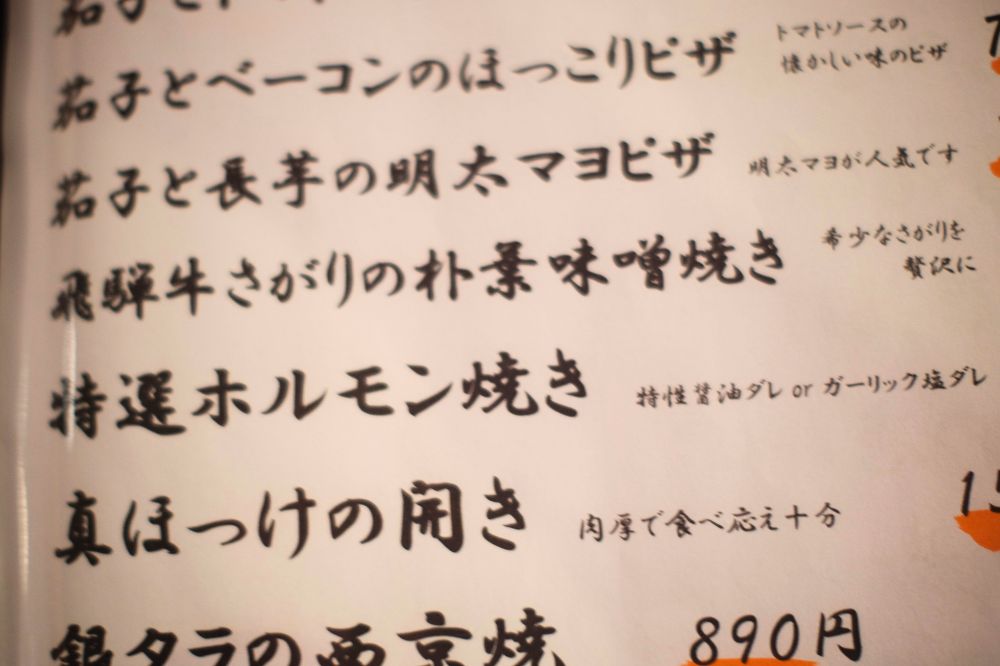 茄子とベーコンのほっこりピザ
トマトソースの
懐かしい味のピザ
茄子と長芋の明太マヨピザ
明太マヨが人気です
飛騨牛さがりの朴葉味噌焼き
希少なさがりを
贅沢に
特選ホルモン焼き
特性醤油ダレ or ガーリック塩ダレ
真ほっけの開き
肉厚で食べ応え十分
銀タラの西京焼
890円